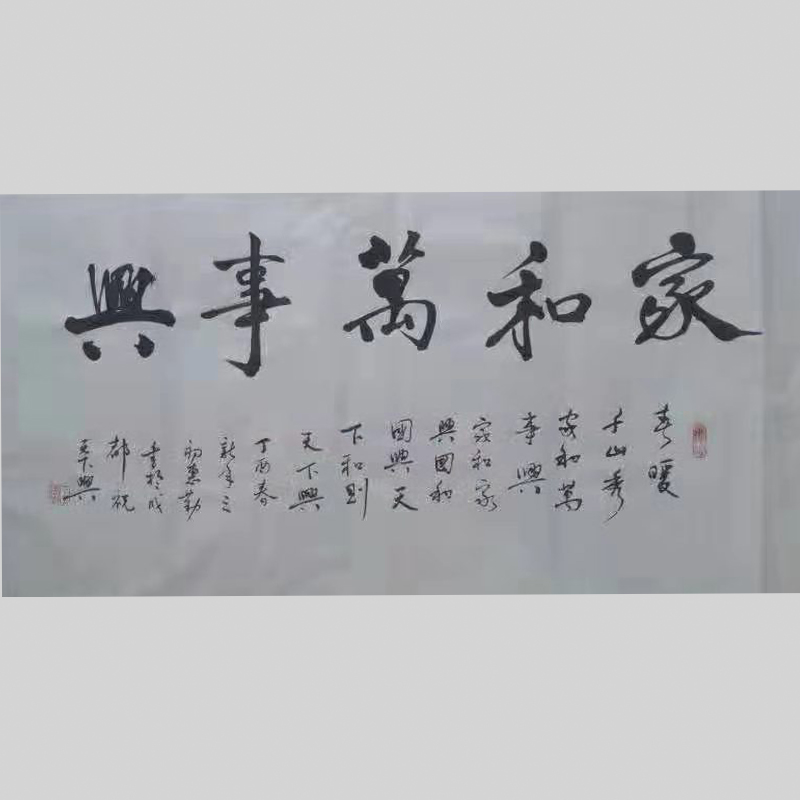 家和萬事興
春暖
千山秀
家和萬
事興
家和家
興國和
國興天
下和則
天下興
丁酉春
新年之
初惠勤
書於成
都祝
天下興